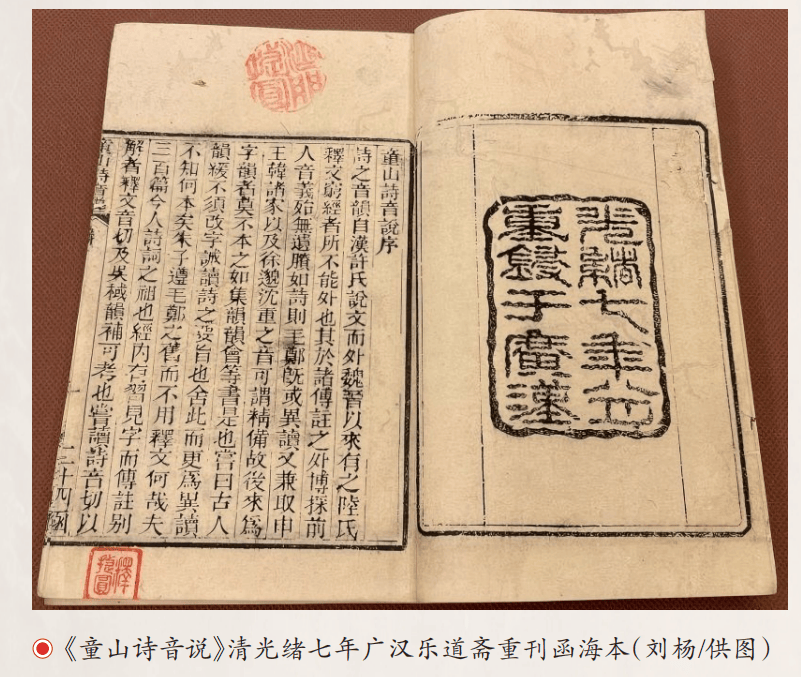 光緒七年
重鋟于廣漢
童山詩音說序
詩之音韻自漢許氏說文而外魏晉以來有之陸氏
釋文窮經者所不能外也其於諸傳註之外博採前
人音義殆無遺賸如詩則毛鄭旣或異讀又兼取申
王韓諸家以及徐邈沈重之音可謂精備故後來爲
字韻者莫不本之如集韻韻會等書是也嘗曰古人
韻緩不須改字誠讀詩之妥旨也舍此而更爲異讀
不知何本矣朱子遵毛鄭之舊而不用釋文何哉夫
三百篇今人詩詞之祖也經内有習見字而傳註別
解者釋文音切及吳棫韻補可考也嘗讀詩音切以
童山詩音 二十四函
《童山诗音说》清光绪七年广汉乐道斋重刊函海本(刘杨/供图)